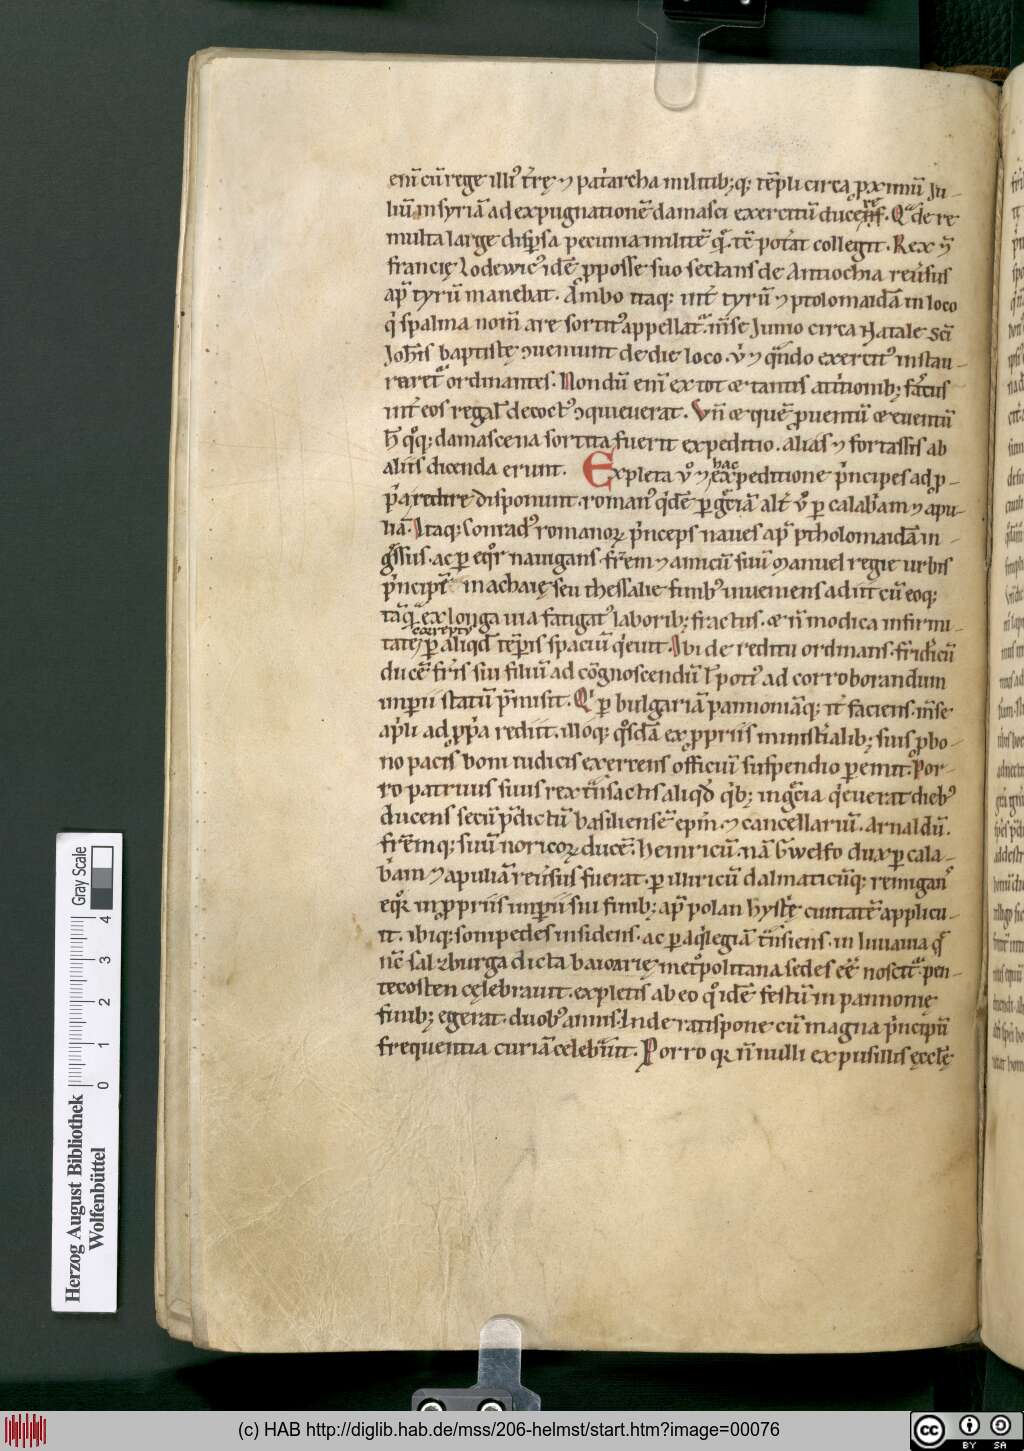 enī cū rege illi᾽ t̄rę ⁊ pat͛archa militib; q; tēpli circa ꝓximū Ju-
liū in syriā ad expugnationē damasci exercitū ducere. Qᵃ de re
multa large disꝑsa pecunia militē qͦ. tē pot͛at collegit. Rex ⁊
francię Lodewic᾽ idē ꝓ posse suo sectans de Antiochia reu͛sus
ap̄ tyrū manebat. Ambo itaq; int͛ tyrū ⁊ ptolomaidā in loco
q͛ spalma nom̄ are sortit᾽ appellat. m̄se Junio circa Natale sc̄i
Joh̄is baptistę ꝯueniunt de die loco. u͛ ⁊ qᵃndo exercit᾽ instau-
raret᷑ ordinantes. Nondū enī ex tot ⁊ tantis attritionib; fact᾽
int͛ eos regal̄ decoct᾽ ꝯquieuerat. Vn̄ ⁊ quē ꝓuentū ⁊ euentū
h̄ qͦq; damascena sortita fuerit expeditio. alias ⁊ fortassis ab
aliis dicenda erunt. Expleta uͦ ⁊ hac expeditione p͛ncipes ad ꝓ-
p͛a redire disponunt. romanᷣ qⁱdē ꝑ gͤciā alt͛ uͦ ꝑ calab͛am ⁊ apu-
liā. Itaq; Conrad᾽ romanoꝝ p͛nceps naues ap̄ ptholomaidā in-
gͤssus. ac ꝑ eqᷣor nauigans. fr̄em ⁊ amicū suū Manuel regię urbis
p͛ncipē in achaię seu thessalię finib᾽ inueniens adiit cū eoq;
tāqᵃ ex longa uia fatigat᾽ laborib; fractus. ⁊ n̄ modica infirmi-
tate correpty ꝑ aliqd̄ tēpis spaciū qⁱeuit. Ibi de reditu ordinans. fridⁱcū
ducē fr̄is sui filiū ad cōgnoscendū l̄ poti᾽ ad corroborandum
imꝑii statū p̄misit. Qⁱ ꝑ bulgariā pannoniāq; it͛ faciens. m̄se
ap͛li ad ꝓp͛a rediit. illoq; qͦsdā ex ꝓpriis minist͛ialib; suis ꝓ bo-
no pacis boni iudicis exercens officiū suspendio ꝑemit. Por-
ro patruus suus rex tᵃnsactis aliqd̄ qⁱb; in gͤcia qⁱeuerat dieb᾽
ducens secū p̄dictū basiliensē epm̄. ⁊ cancellariū. Arnaldū.
fr̄emq; suū noricoꝝ ducē. heinricū. nā Gwelfo dux ꝑ cala-
b͛am ⁊ apuliā reu͛sus fuerat. ꝑ illiricū dalmaticūq; remigans
eqᷣor in ꝓpriis imꝑii sui finib; ap̄ polan hystę ciuitatē applicu-
it. ibiq; sonipedes insidens. ac ꝑ aq͛legiā tᵃnsiens. in Iuuauia qᵉ
nc̄ salzburga dicta baioarię metᷣopolitana sedes eē noscit᷑. pen-
tecosten cęlebrauit. expletis ab eo qͦ idē festū in pannonię
finib; egerat. duob᾽ annis. Inde ratispone cū magna p͛ncipū
frequentia curiā celebᵃuit. Porro qr n̄nulli ex pusillis ęcclę
Gray Scale
0 1 2 3 4
Herzog August Bibliothek
Wolfenbüttel
(c) HAB http://diglib.hab.de/mss/206-helmst/start.htm?image=00076
cc BY SA